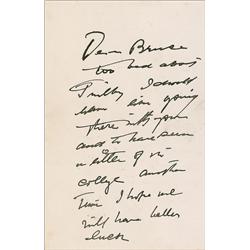 Dear Bruce
too bad about
I
have been going
there with you
and to have seen
a little of
college another
time I hope we
will have better
luck